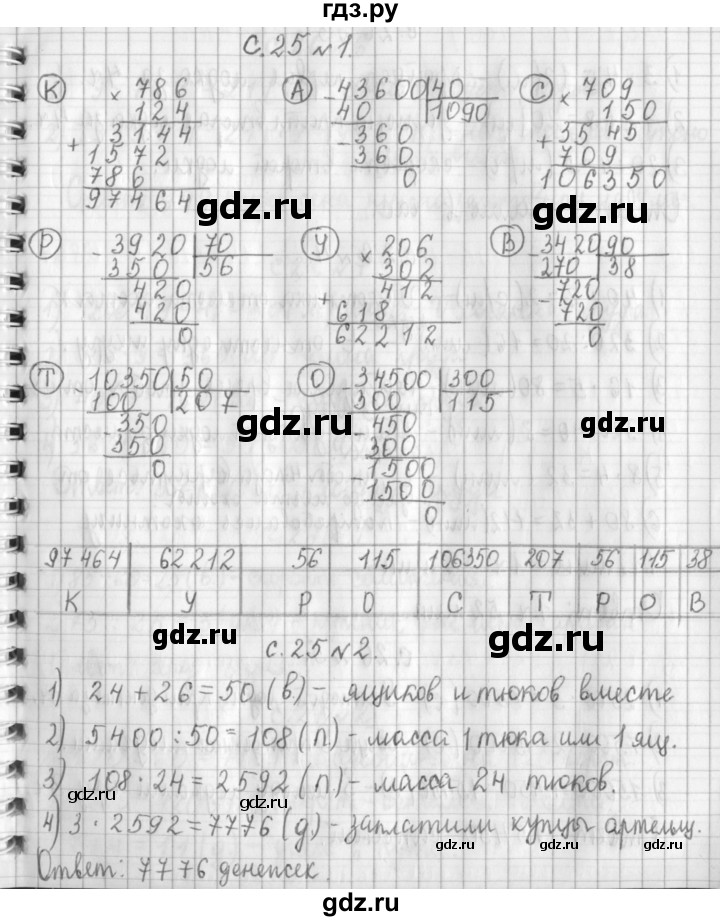 гдз.ру
с.25 №1.
К × 786 А - 43600 40 С × 709
124 40 1090 150
3144 - 360 + 3545
+ 1572 360 709
786 0 106350
97464
gdz.ru gdz.ru
Р - 3920 70 У × 206 В - 3420 90
350 56 302 270 38
- 420 412 - 720
420 + 618 720
0 62212 0
Т - 10350 50 О - 34500 300
100 207 300 115
- 350 - 450
350 300
0 - 1500
1500
0
gdz.ru gdz.ru
97464 62212 56 115 106350 207 56 115 38
К У Р О С Т Р О В
gdz.ru gdz.ru
с.25 №2.
1) 24+26=50 (в) - ящиков и тюков вместе
2) 5400:50=108 (п) - масса 1 тюка или 1 ящ.
3) 108·24=2592 (п) - масса 24 тюков.
gdz.ru gdz.ru
4) 3·2592=7776 (д) - заплатили купцы артельщ.
Ответ: 7776 денепсек.
gdz.ru gdz.ru
gdz.ru